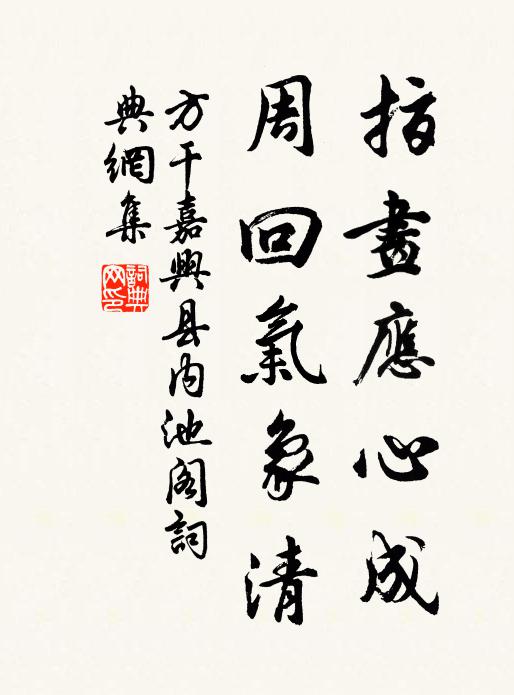 指畫應心成
周回氣象清
方干嘉興县内池阁詞
典網集
詞典
网印